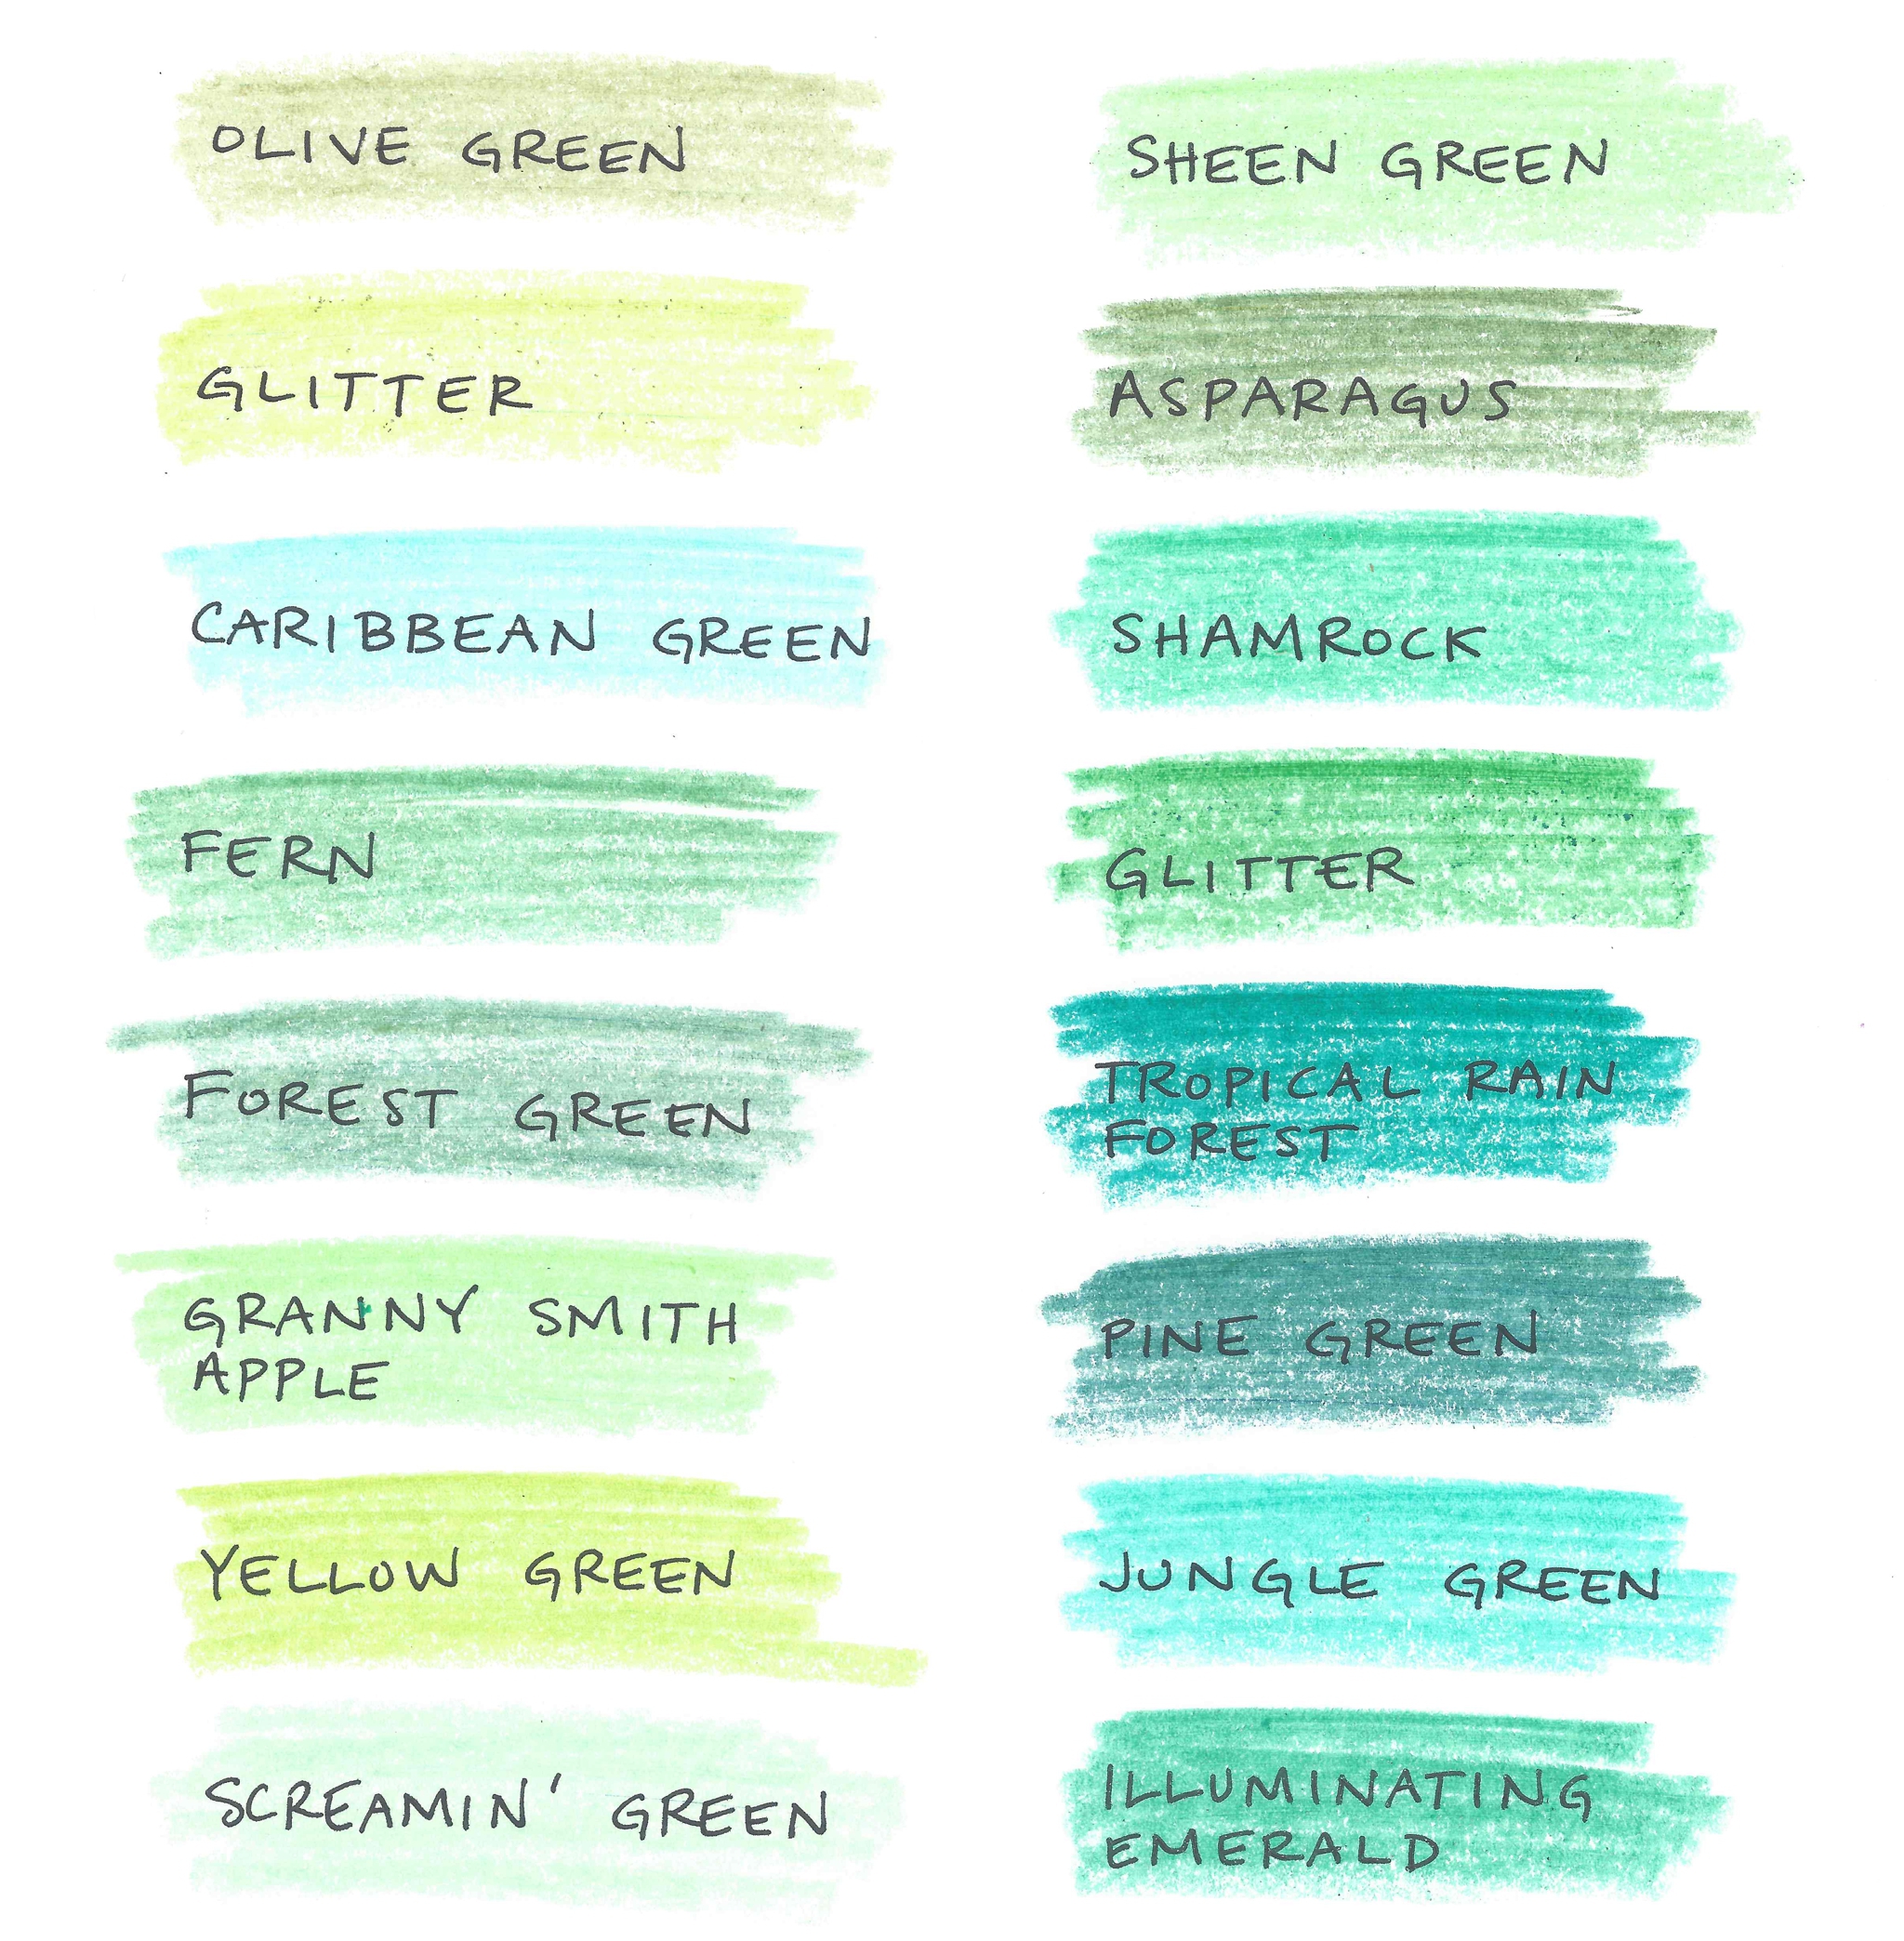 OLIVE GREEN
GLITTER
CARIBBEAN GREEN
FERN
FOREST GREEN
GRANNY SMITH
APPLE
YELLOW GREEN
SCREAMIN' GREEN
SHEEN GREEN
ASPARAGUS
SHAMROCK
GLITTER
TROPICAL RAIN
FOREST
PINE GREEN
JUNGLE GREEN
ILLUMINATING
EMERALD